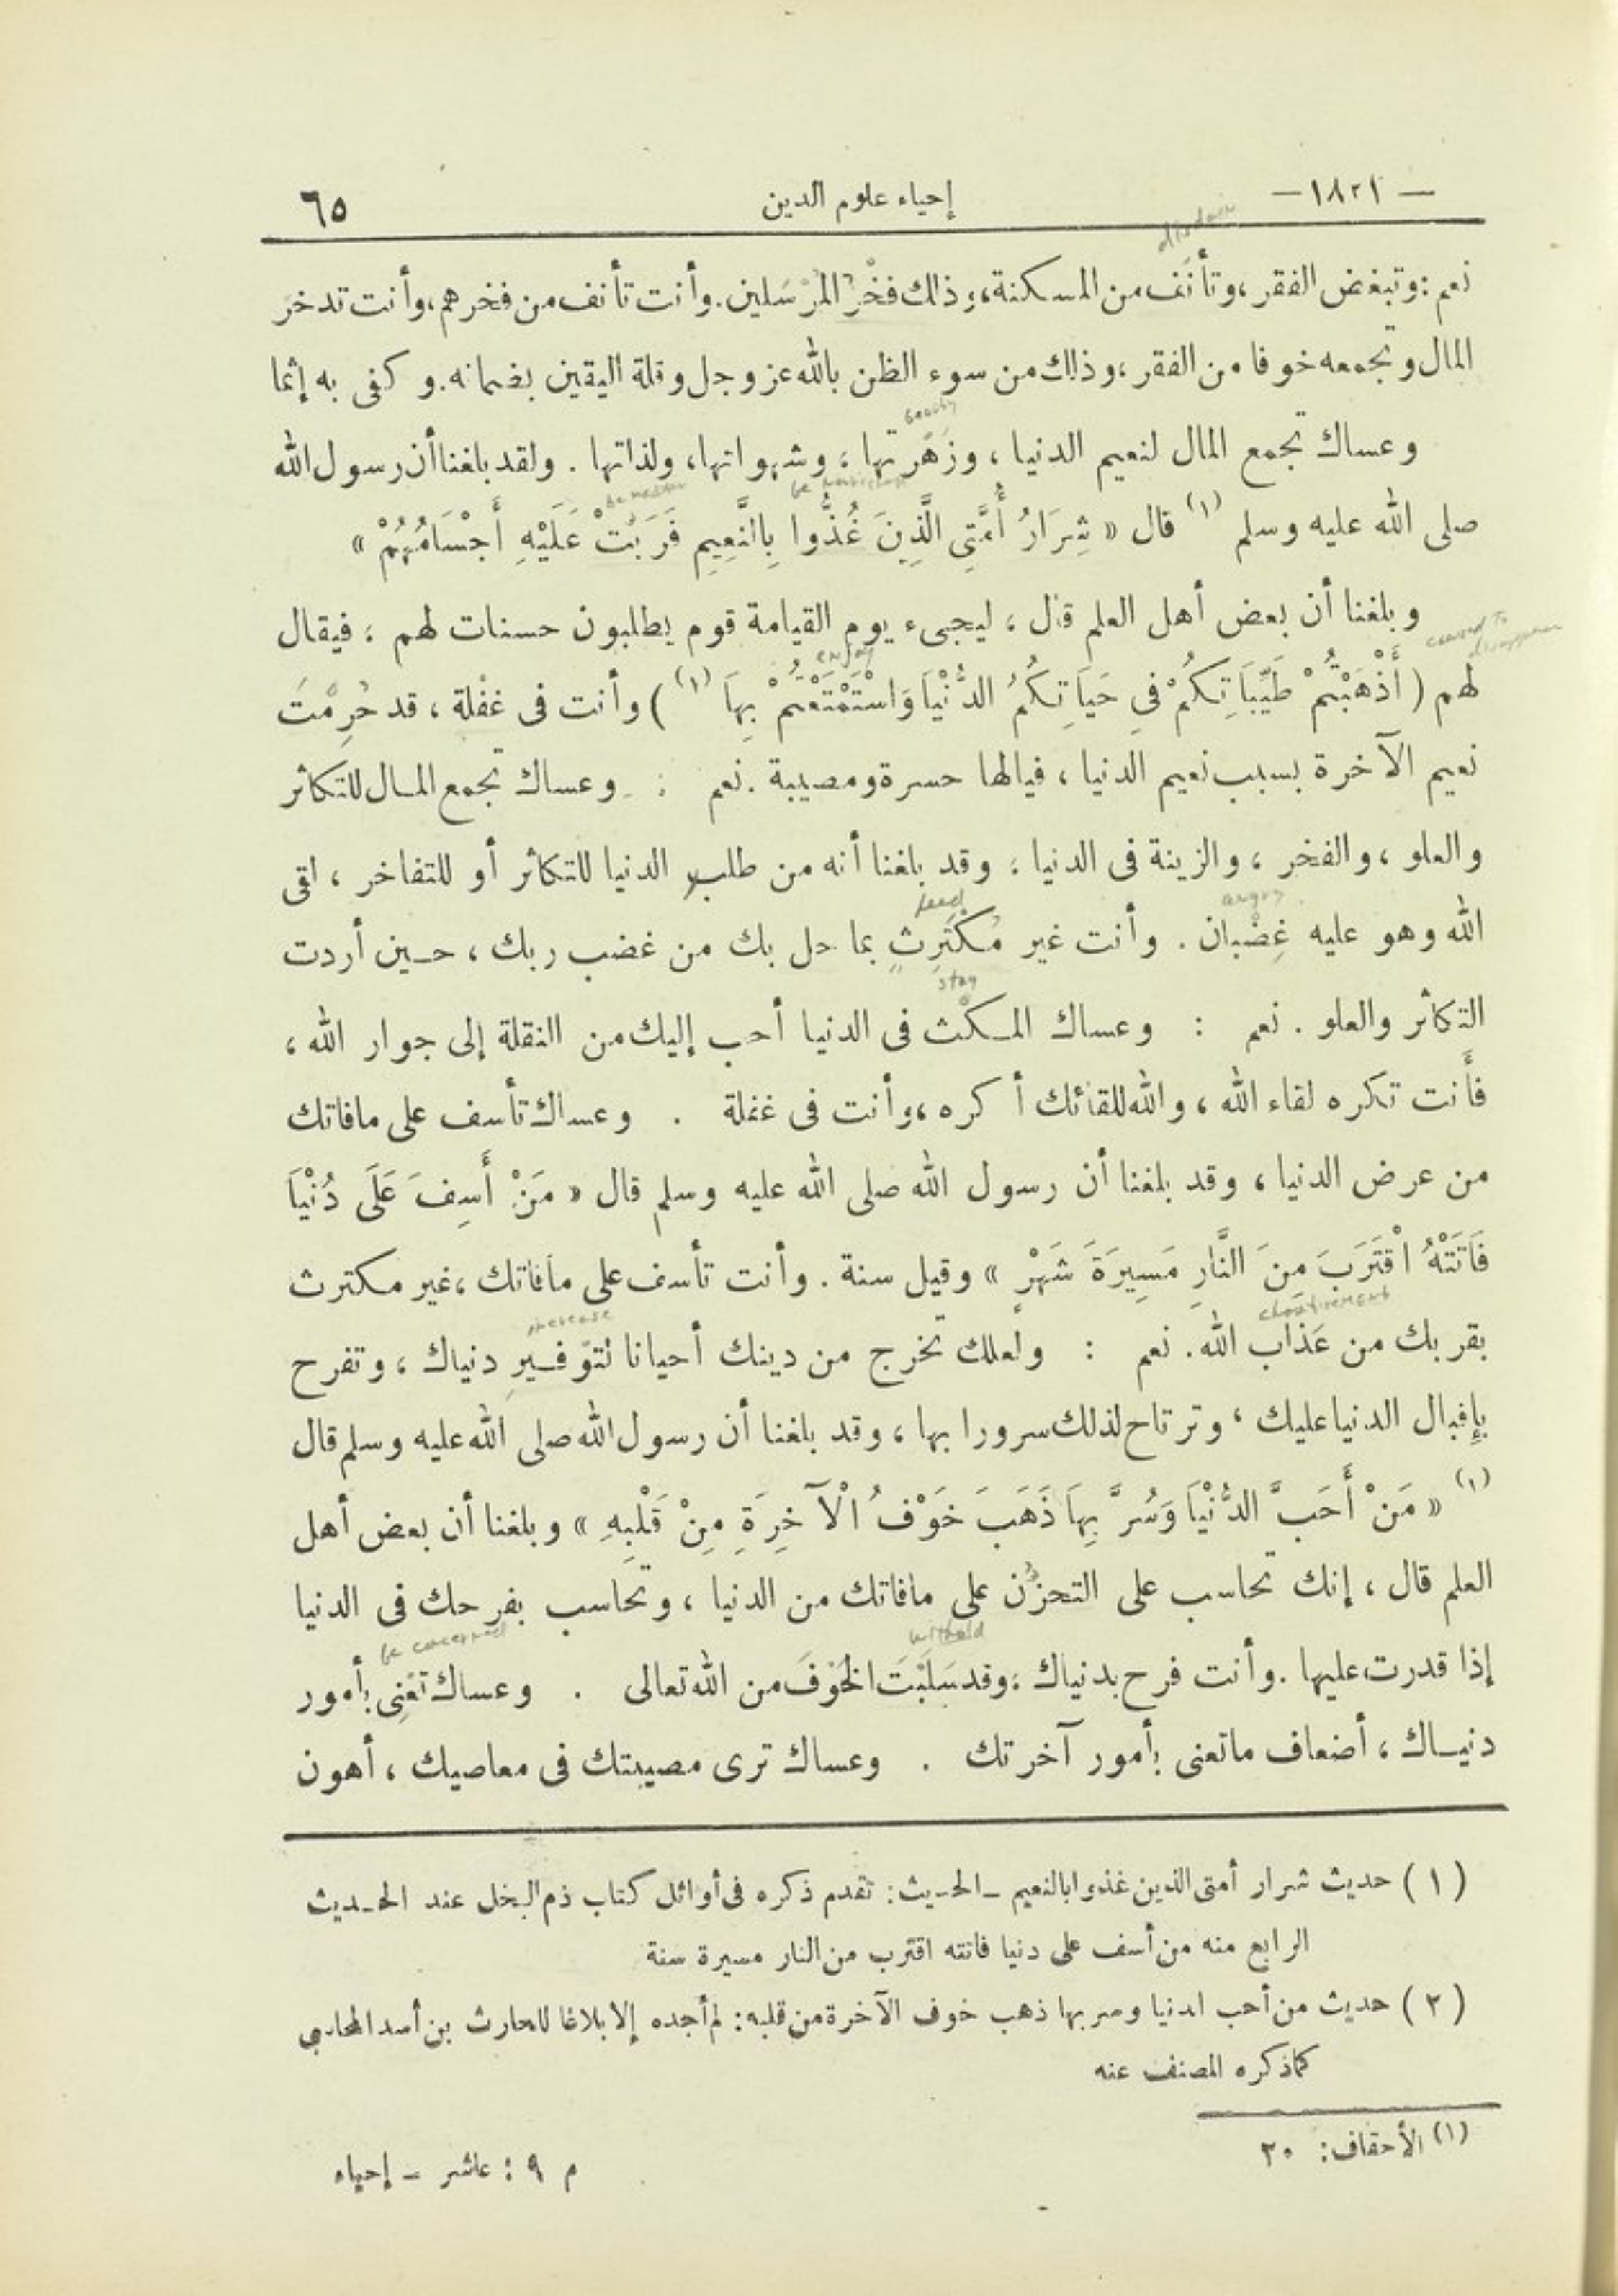 — ١٨٢١ —
إحياء علوم الدين
٦٥
disdain
نعم : وتبغض الفقر ، وتأنَف من المسكنة ، وذلك فخْرُ المرْسَلين . وأنت تأنف من فخرهم ، وأنت تدخر
المال وتجمعه خوفا من الفقر ، وذلك من سوء الظن بالله عز وجل وقلة اليقين بضمانه . وكفى به إثما
beauty
وعساك تجمع المال لنعيم الدنيا ، وزَهْرتها ، وشهواتها ، ولذاتها . ولقد بلغنا أن رسول الله
be nourished
صلى الله عليه وسلم (١) قال « شِرَارُ أُمَّتِي الَّذِينَ غُذُّوا بِالنَّعِيمِ فَرَبَتْ عَلَيْهِ أَجْسَامُهُمْ »
وبلغنا أن بعض أهل العلم قال ، ليجىء يوم القيامة قوم يطلبون حسنات لهم ، فيقال
caused to disappear
enjoy
لهم ( أَذْهَبْتُمْ طَيِّبَاتِكُمْ فِي حَيَاتِكُمُ الدُّنْيَا وَاسْتَمْتَعْتُمْ بِهَا (١) ) وأنت فى غفْلة ، قد حُرِمْتَ
نعيم الآخرة بسبب نعيم الدنيا ، فيالها حسرة ومصيبة . نعم : وعساك تجمع المال للتكاثر
والعلو ، والفخر ، والزينة فى الدنيا ، وقد بلغنا أنه من طلب الدنيا للتكاثر أو للتفاخر ، لقى
heed
angry
الله وهو عليه غِضْبان . وأنت غير مُكْتَرِثٍ بما حل بك من غضب ربك ، حين أردت
stay
التكاثر والعلو . نعم : وعساك المكْث فى الدنيا أحب إليك من النقلة إلى جوار الله ،
فأَنت تكره لقاء الله ، والله للقائك أكره ، وأنت فى غفلة . وعساك تأسف على مافاتك
من عرض الدنيا ، وقد بلغنا أن رسول الله صلى الله عليه وسلم قال « مَنْ أَسِفَ عَلَى دُنْيَا
فَاتَتْهُ اقْتَرَبَ مِنَ النَّارِ مَسِيرَةَ شَهْرٍ » وقيل سنة . وأنت تأسف على مافاتك ، غير مكترث
chastisement
increase
بقربك من عَذاب الله . نعم : ولعلك تخرج من دينك أحيانا لتوْفيرِ دنياك ، وتفرح
بإِقبال الدنيا عليك ، وترتاح لذلك سرورا بها ، وقد بلغنا أن رسول الله صلى الله عليه وسلم قال
(١) « مَنْ أَحَبَّ الدُّنْيَا وَسُرَّ بِهَا ذَهَبَ خَوْفُ الْآخِرَةِ مِنْ قَلْبِهِ » وبلغنا أن بعض أهل
العلم قال ، إنك تحاسب على التحزُّن على مافاتك من الدنيا ، وتحَاسب بفرحك فى الدنيا
withold
be concerned
إذا قدرت عليها . وأنت فرح بدنياك ، وقد سَلَبْتَ الخَوْفَ من الله تعالى . وعساك تعْنِى بأمور
دنياك ، أضعاف ماتعنى بأمور آخرتك . وعساك ترى مصيبتك فى معاصيك ، أهون
( ١ ) حديث شرار أمتى الذين غذوا بالنعيم - الحديث : تقدم ذكره فى أوائل كتاب ذم البخل عند الحديث
الرابع منه من أسف على دنيا فاتته اقترب من النار مسيرة سنة
( ٢ ) حديث من أحب الدنيا وسر بها ذهب خوف الآخرة من قلبه : لم أجده إلا بلاغا للحارث بن أسد المحاسبى
كما ذكره المصنف عنه
(١) الأحقاف : ٢٠
م ٩ : عاشر - إحياء